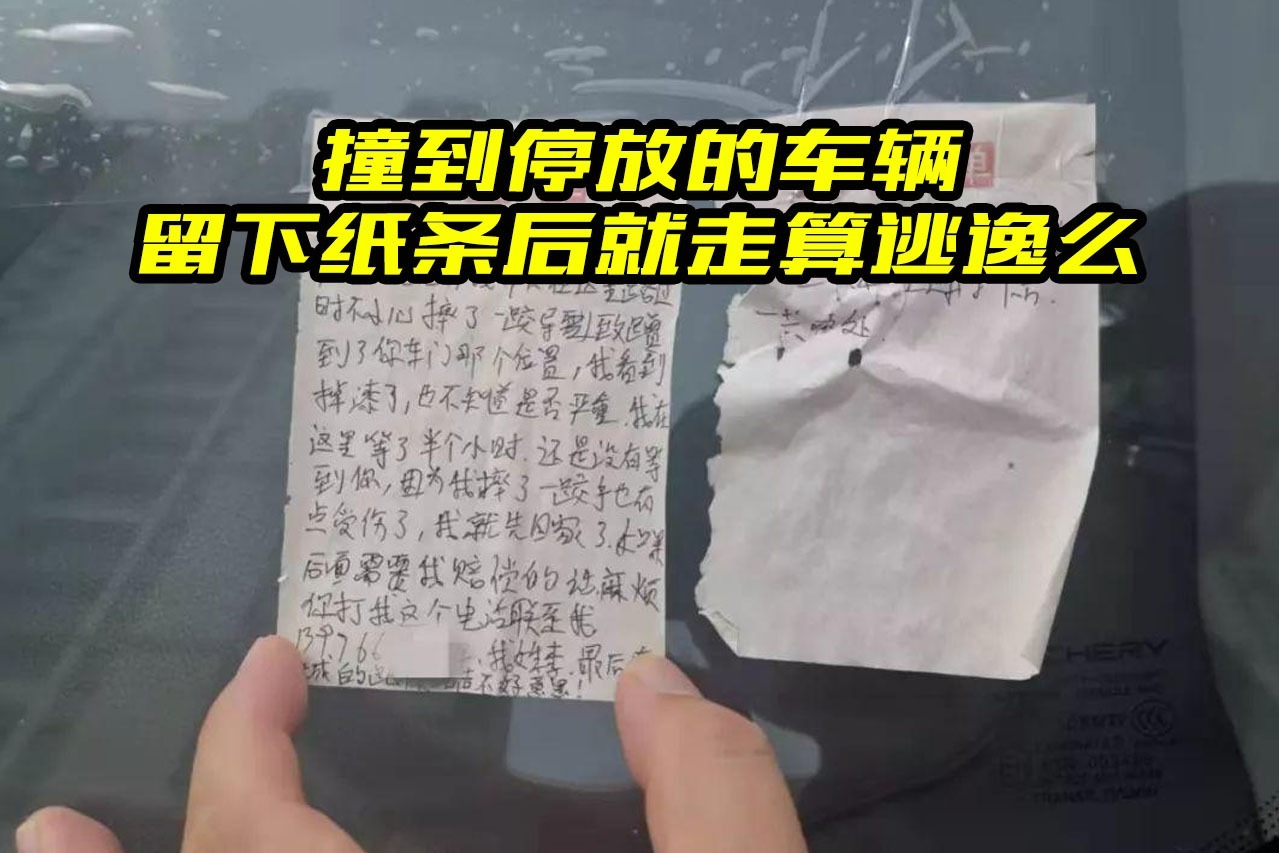 撞到停放的车辆
留下纸条后就走算逃逸么
时不小心摔了一跤导致蹭
到了你车门那个位置，我看到
掉漆了，也不知道是否严重.我在
这里等了半个小时.还是没有等
到你，因为我摔了一跤手也有
点受伤了，我就先回家了.如果
后面需要我赔偿的话麻烦
你打我这个电话联系我
139766
我姓李，最后
不好意思！
一共
CHERY